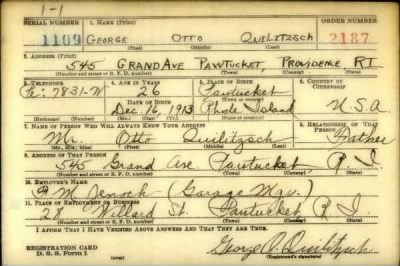 1-1
SERIAL NUMBER 1. NAME (Print) ORDER NUMBER
1109 GEORGE OTTO QUILITZSCH 2187
(First) (Middle) (Last)
2. ADDRESS (Print)
545 GRAND AVE PAWTUCKET, PROVIDENCE R.I.
(Number and street or R. F. D. number) (Town) (County) (State)
3. TELEPHONE 4. AGE IN YEARS 5. PLACE OF BIRTH 6. COUNTRY OF CITIZENSHIP
7831-W 26 Pawtucket
DATE OF BIRTH (Town or county)
Dec 16, 1913 Rhode Island U.S.A
(Exchange) (Number) (Mo.) (Day) (Yr.) (State or country)
7. NAME OF PERSON WHO WILL ALWAYS KNOW YOUR ADDRESS 8. RELATIONSHIP OF THAT PERSON
Mr. Otto Quilitzsch Father
(Mr., Mrs., Miss) (First) (Middle) (Last)
9. ADDRESS OF THAT PERSON
545 Grand Ave Pawtucket, R I.
(Number and street or R. F. D. number) (Town) (County) (State)
10. EMPLOYER'S NAME
(Garage Mgr.)
11. PLACE OF EMPLOYMENT OR BUSINESS
28 Willard St. Pawtucket R. I.
(Number and street or R. F. D. number) (Town) (County) (State)
I AFFIRM THAT I HAVE VERIFIED ABOVE ANSWERS AND THAT THEY ARE TRUE.
REGISTRATION CARD
D. S. S. Form 1
George O. Quilitzsch
(Registrant's signature)